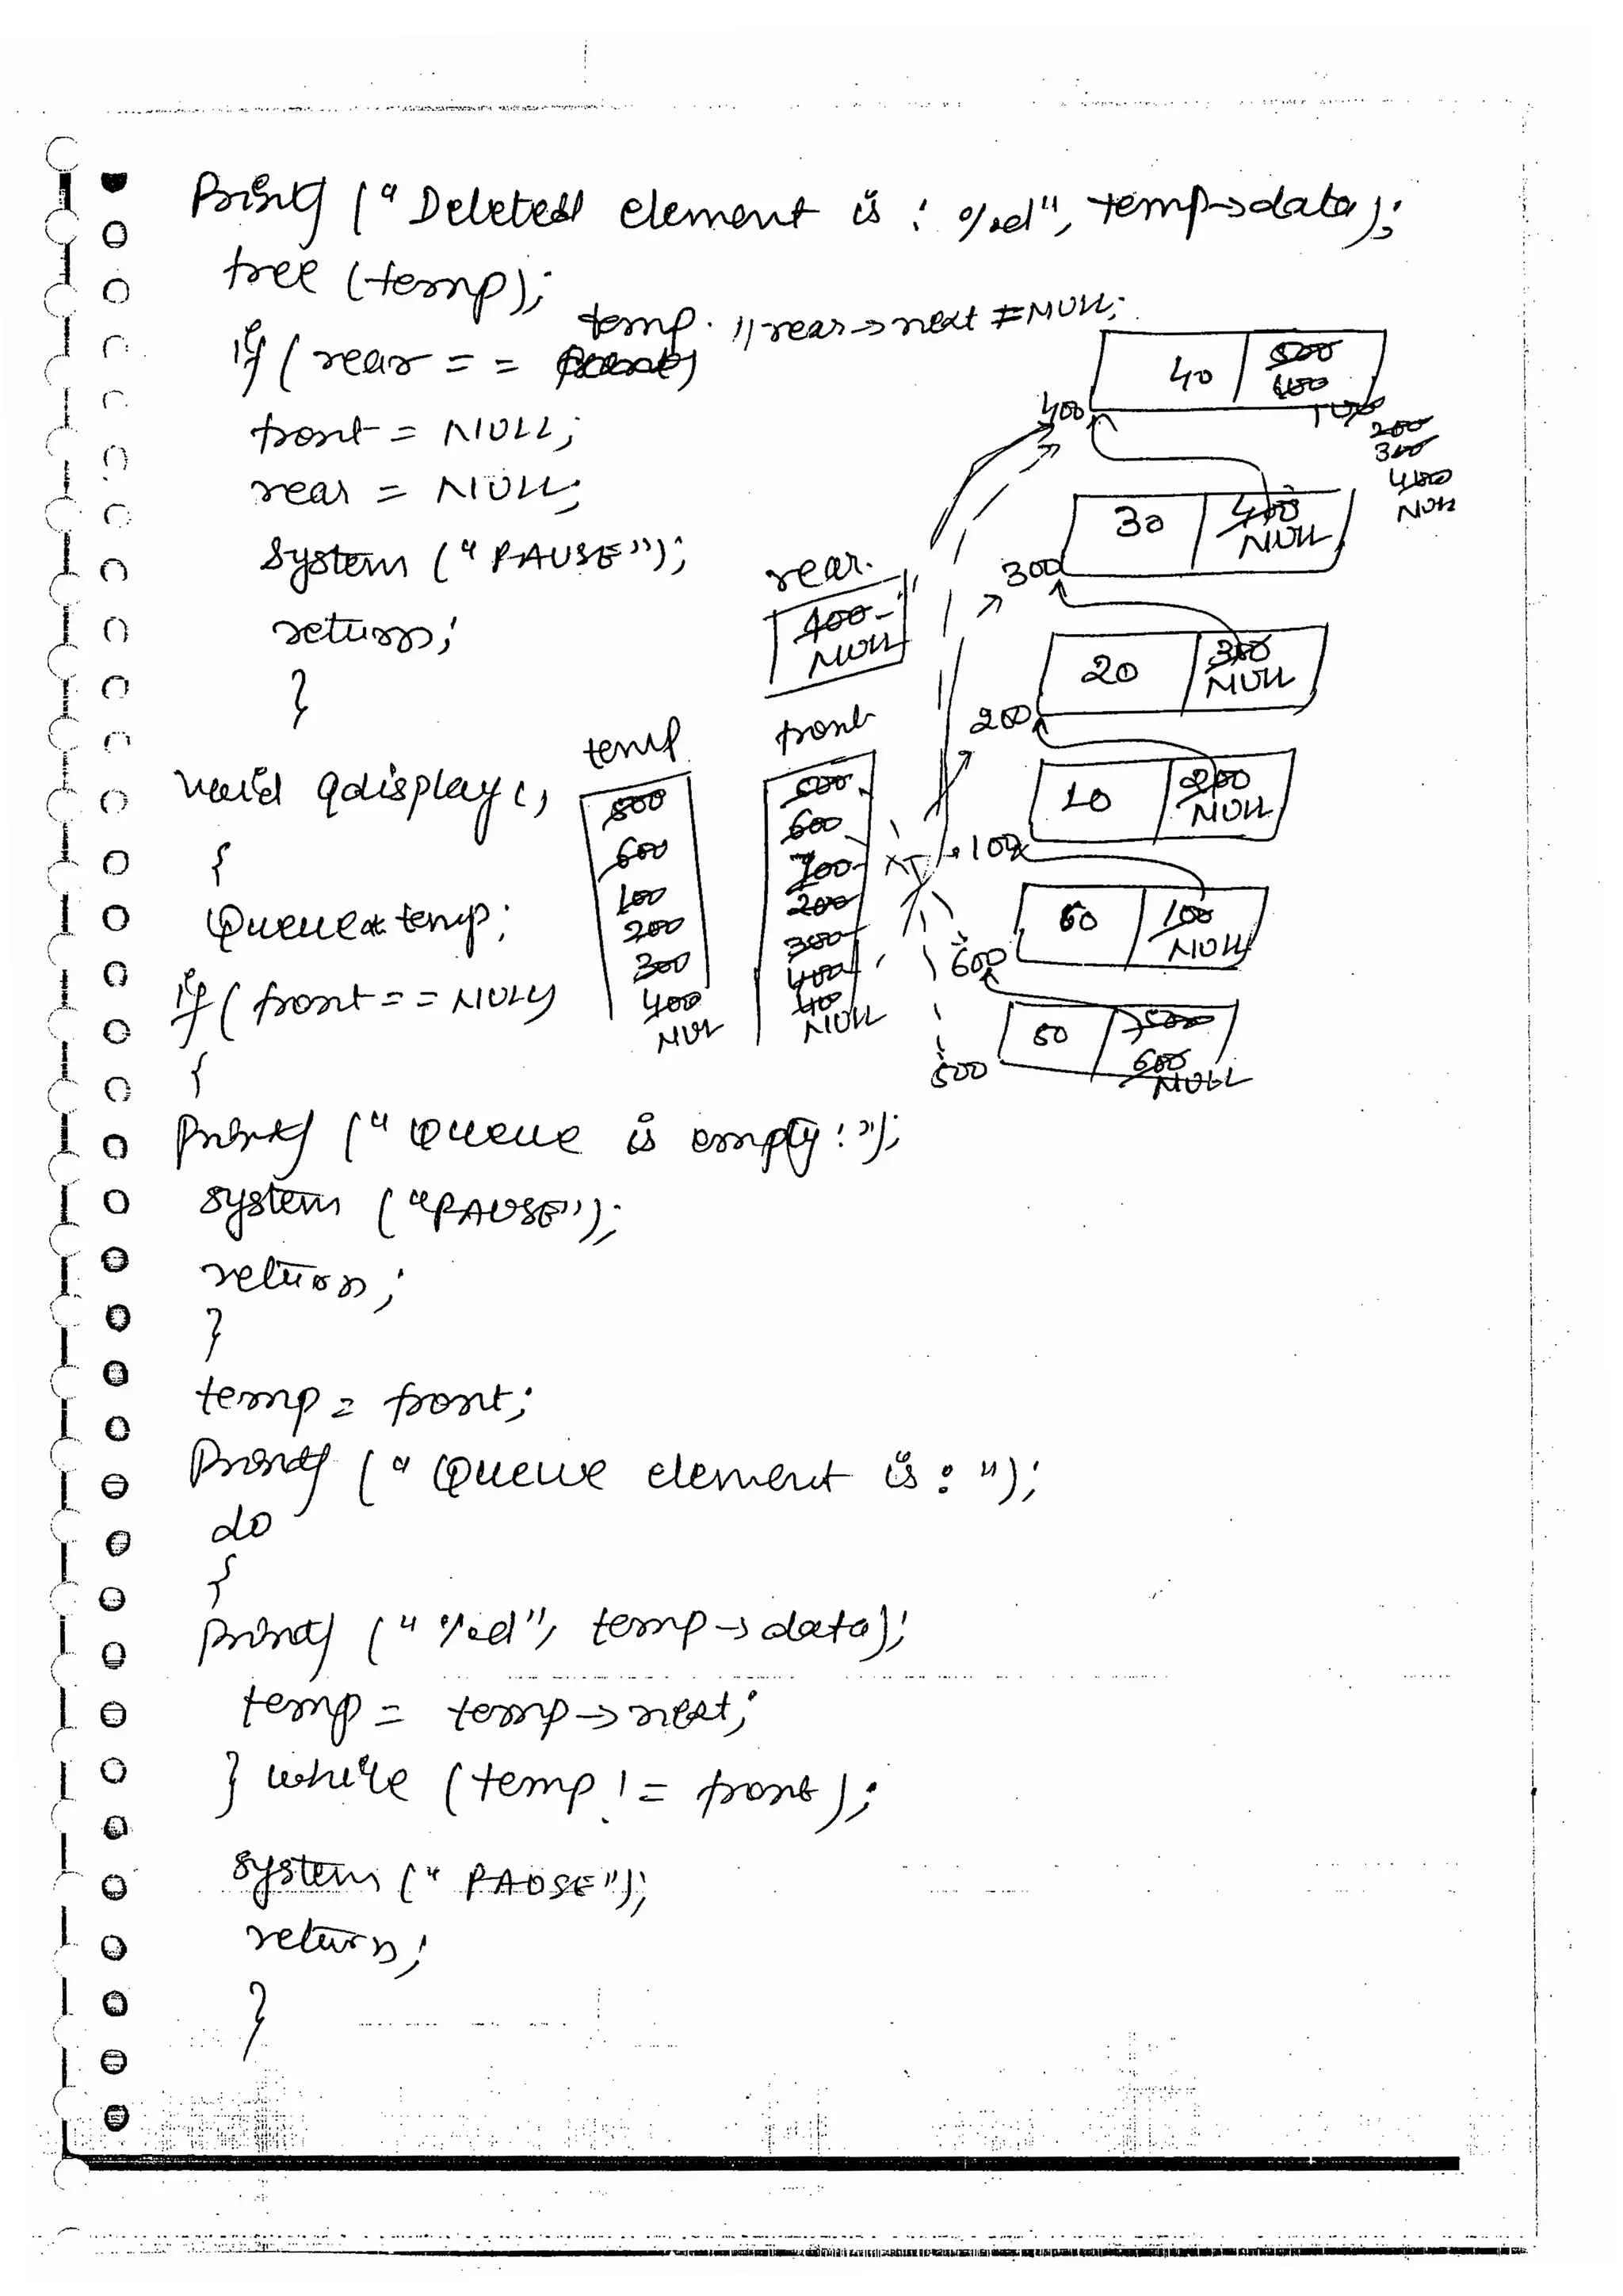 Printf ("Deleted element is : %d", temp->data);
free (temp);
temp. //rear->next ≠ NULL;
if ( rear == )
front = NULL;
rear = NULL;
System ("PAUSE");
return;
}
void qdisplay()
{
Queue* temp;
if ( front == NULL)
{
Printf ("Queue is empty!");
system ("PAUSE");
return;
}
temp = front;
Printf ("Queue element is : ");
do
{
printf ("%d", temp->data);
temp = temp->next;
} while (temp != front);
system ("PAUSE");
return;
}
rear.
400
NULL
temp
500
600
100
200
300
400
NUL
front
500
600
100
200
300
400
40
NULL
40
500
400
100
200
300
400
NULL
400
30
400
NULL
300
20
300
NULL
200
10
200
NULL
100
60
100
NULL
600
50
500
600
NULL
500